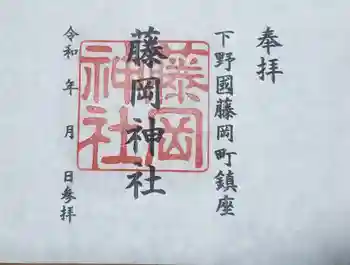 奉拝
下野國藤岡町鎮座
藤岡神社
藤岡神社
令和 年 月 日参拝